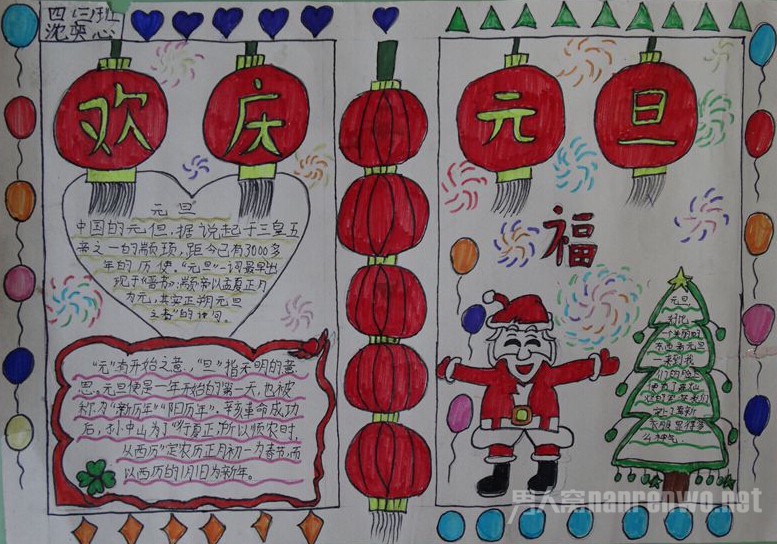 四(三)班
沈奕心
欢庆
元旦
福
元旦
中国的元但,据说起于三皇五
帝之一的颛顼,距今已有3000多
年的历使。"元旦"一词最早出
现于《晋书》:颛帝以孟夏正月
为元,其实正朔元旦
之春"的诗句。
"元"有开始之意,"旦"指天明的意
思。元旦便是一年开始的第一天,也被
称为"新历年""阳历年"。辛亥革命成功
后,孙中山为了"行夏正,所以顺农时,
从西历"定农历正月初一为春节,而
以西历的1月1日为新年。
元旦
男人窝nanrenwo.net